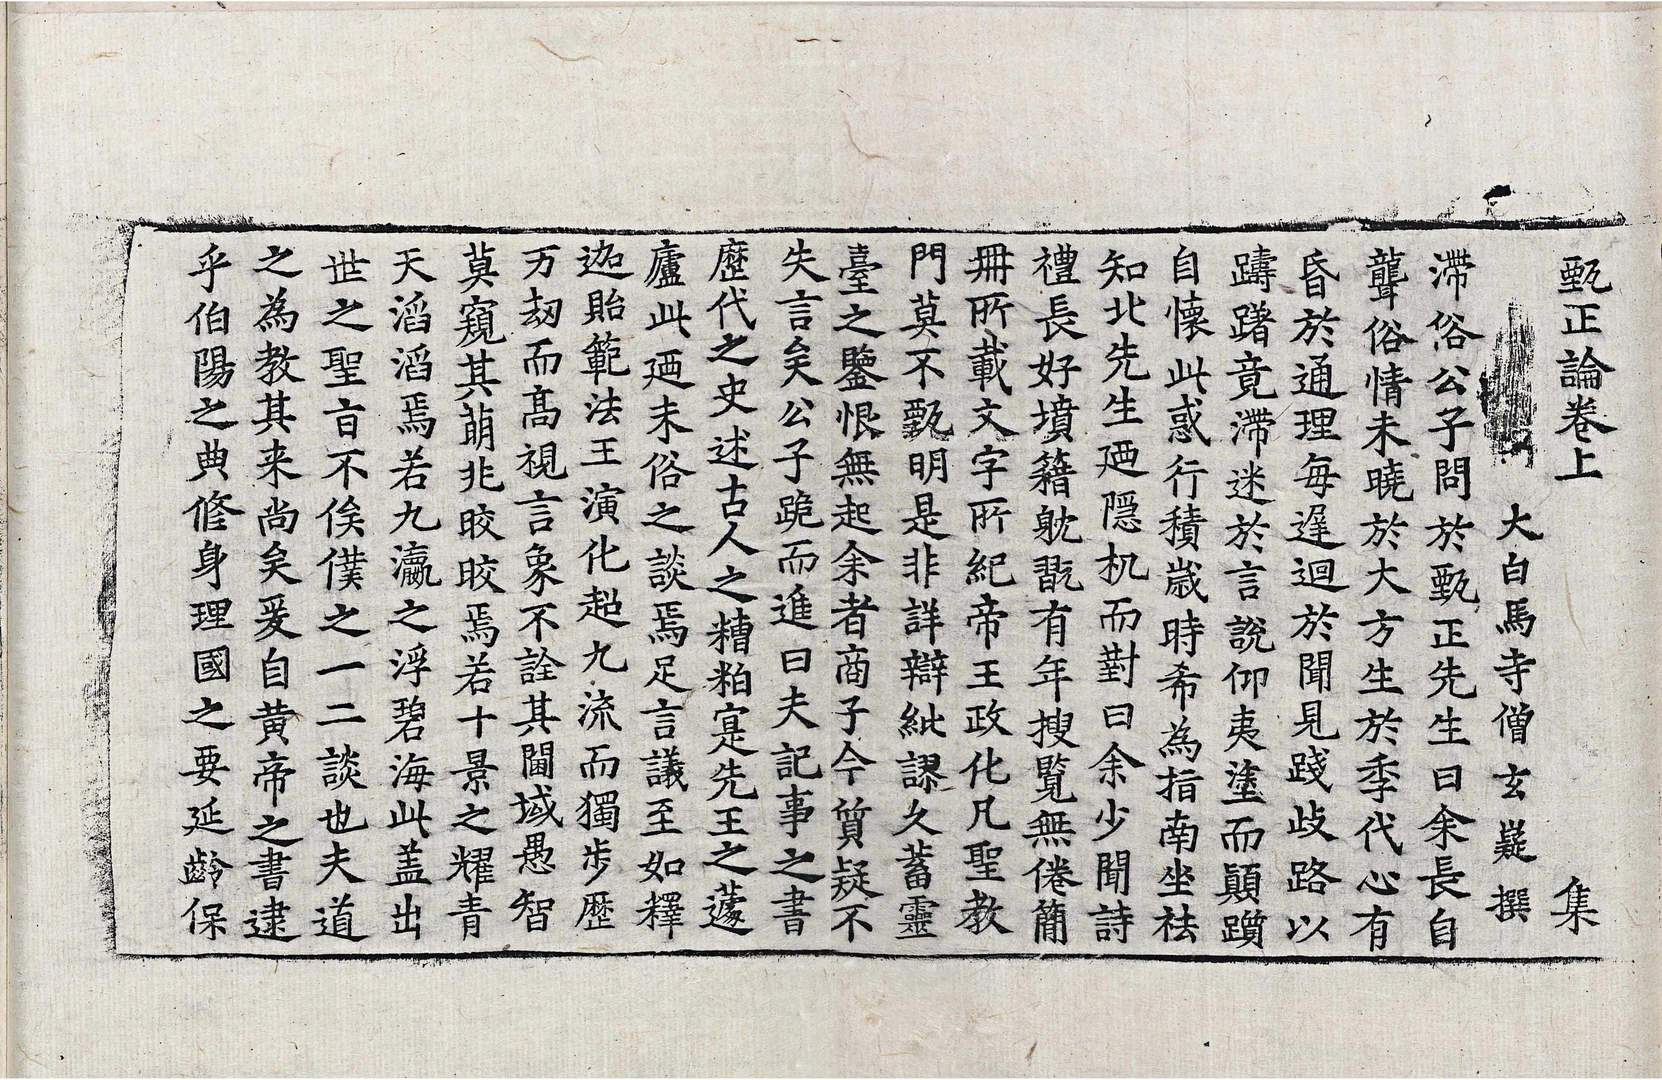 甄正論卷上　集
大白馬寺僧玄嶷撰
滯俗公子問於甄正先生曰余長自
聾俗情未曉於大方生於季代心有
昏於通理每遲迴於聞見踐歧路以
躊躇竟滯迷於言說仰夷塗而顛躓
自懷此惑行積歲時希為指南坐祛
知北先生廼隱机而對曰余少聞詩
禮長好墳籍躭翫有年搜覽無倦簡
冊所載文字所紀帝王政化凡聖教
門莫不甄明是非詳辯紕謬久蓄靈
臺之鑒恨無起余者商子今質疑不
失言矣公子跪而進曰夫記事之書
歷代之史述古人之糟粕寔先王之蘧
廬此廼末俗之談焉足言議至如釋
迦貽範法王演化超九流而獨步歷
万劫而高視言象不詮其閫域愚智
莫窺其萌兆晈晈焉若十景之耀青
天滔滔焉若九瀛之浮碧海此盖出
世之聖言不俟僕之一二談也夫道
之為教其来尚矣爰自黃帝之書逮
乎伯陽之典修身理國之要延齡保